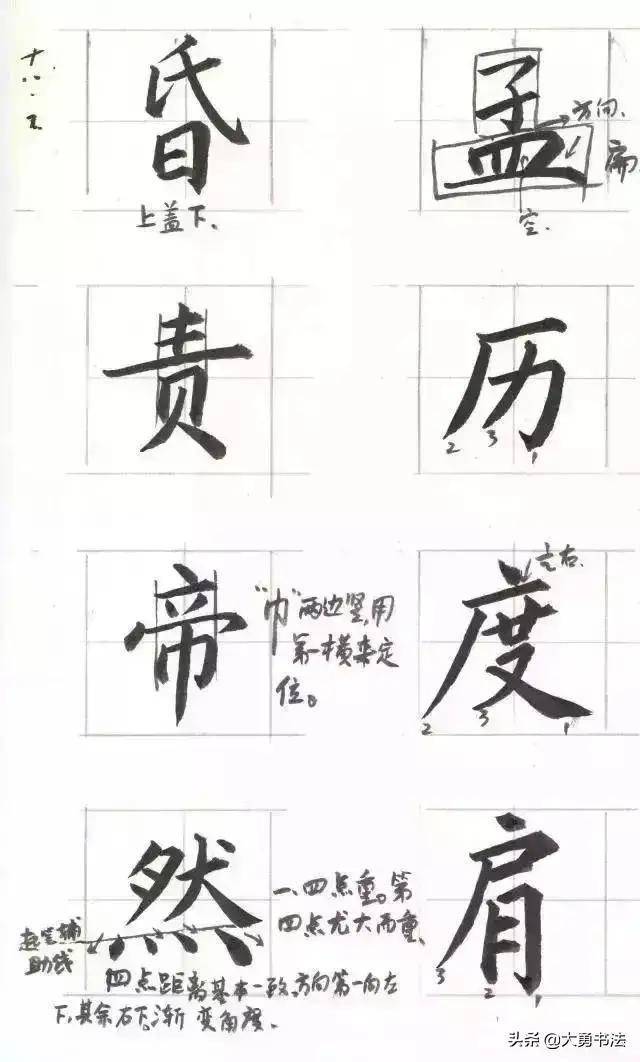 昏
孟
方向、
扁
上盖下、
空、
责
历
2 3 1
帝
"巾"两边竖,用
第一横来定
位。
度
之右、
2 3 1
然
一、四点重。第
四点尤大而重、
起笔辅
助线
四点距离基本一致、方向第一向左
下,其余右下。渐变角度、
肩
3 2 1
头条@大勇书法